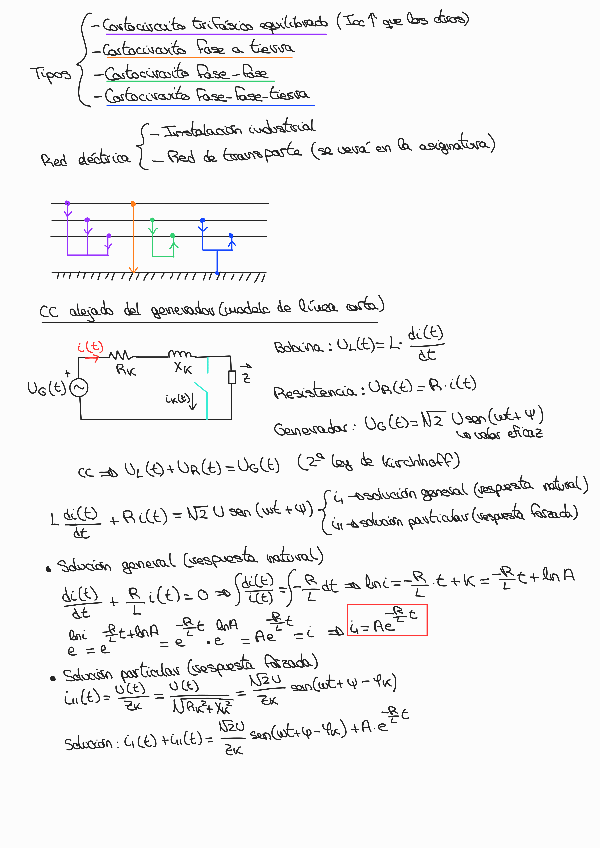 Tipos
- Cortocircuito trifásico equilibrado (Icc ↑ que los otros)
- Cortocircuito fase a tierra
- Cortocircuito fase-fase
- Cortocircuito fase-fase-tierra
Red eléctrica
- Instalación industrial
- Red de transporte (se verá en la asignatura)
CC alejado del generador (modelo de línea corta)
i(t)
RK
XK
+
UG(t)
iK(t)
Z
Bobina: UL(t)=L· di(t)/dt
Resistencia: UR(t)=R·i(t)
Generador: UG(t)=√2 U sen(wt+Ψ)
↳ valor eficaz
CC ⇒ UL(t)+UR(t)=UG(t) (2ª ley de Kirchhoff)
L di(t)/dt + R i(t) = √2 U sen(wt+ψ)
i₁ → solución general (respuesta natural)
i₁₁ → solución particular (respuesta forzada)
• Solución general (respuesta natural)
di(t)/dt + R/L i(t) = 0 ⇒ ∫ di(t)/i(t) = ∫ -R/L dt ⇒ ln i = -R/L · t + K = -R/L t + ln A
e^(ln i) = e^(-R/L t + ln A) = e^(-R/L t) · e^(ln A) = A e^(-R/L t) = i ⇒ i₁ = A e^(-R/L t)
• Solución particular (respuesta forzada)
i₁₁(t) = U(t)/ZK = U(t)/√(RK²+XK²) = √2U/ZK sen(wt+ψ-φK)
Solución: i₁(t)+i₁₁(t) = √2U/ZK sen(wt+ψ-φK) + A·e^(-R/L t)